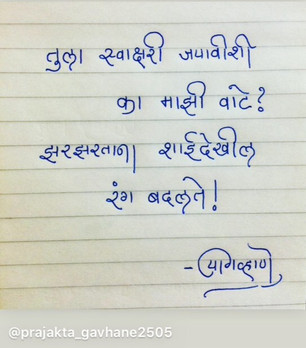 तुला स्वाक्षरी जपावीशी
का माझी वाटे?
झरझरताना शाईदेखील
रंग बदलते!
@prajakta_gavhane2505